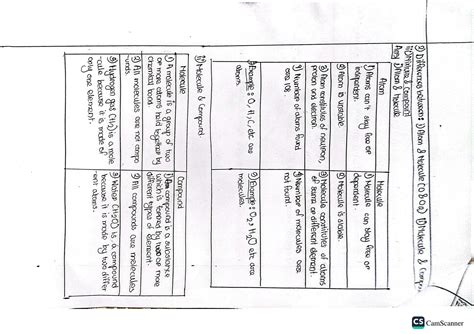 2) Differences between: i) Atom & Molecule (Q.B.Q.2) ii) Molecule & Compou
iii) Mixture & Compound
Ans] i) Atom & Molecule
Atom
Molecule
1) Atom can't stay free or
independent.
1) Molecule can stay free or
dependent.
2) Atom is unstable
2) Molecule is stable.
3) Atom constitutes of neutron,
proton and electron.
3) Molecule constitutes of atoms
of same or different element.
4) Number of atoms found
are 118.
4) Number of molecules are
not found.
5) Example: O, H, C etc are
atoms.
5) Example: O2, H2O etc are
molecules.
ii) Molecule & Compound
Molecule
Compound
1) A molecule is a group of two
or more atoms held together by
chemical bond
1) A compound is a substance
which is formed by two or more
different types of element.
2) All molecules are not compo
unds.
2) All compounds are molecules
3) Hydrogen gas (H2) is a mole
cule because it is made of
only one element.
3) Water (H2O) is a compound
because it is made by two differ
ent atoms.
CS CamScanner